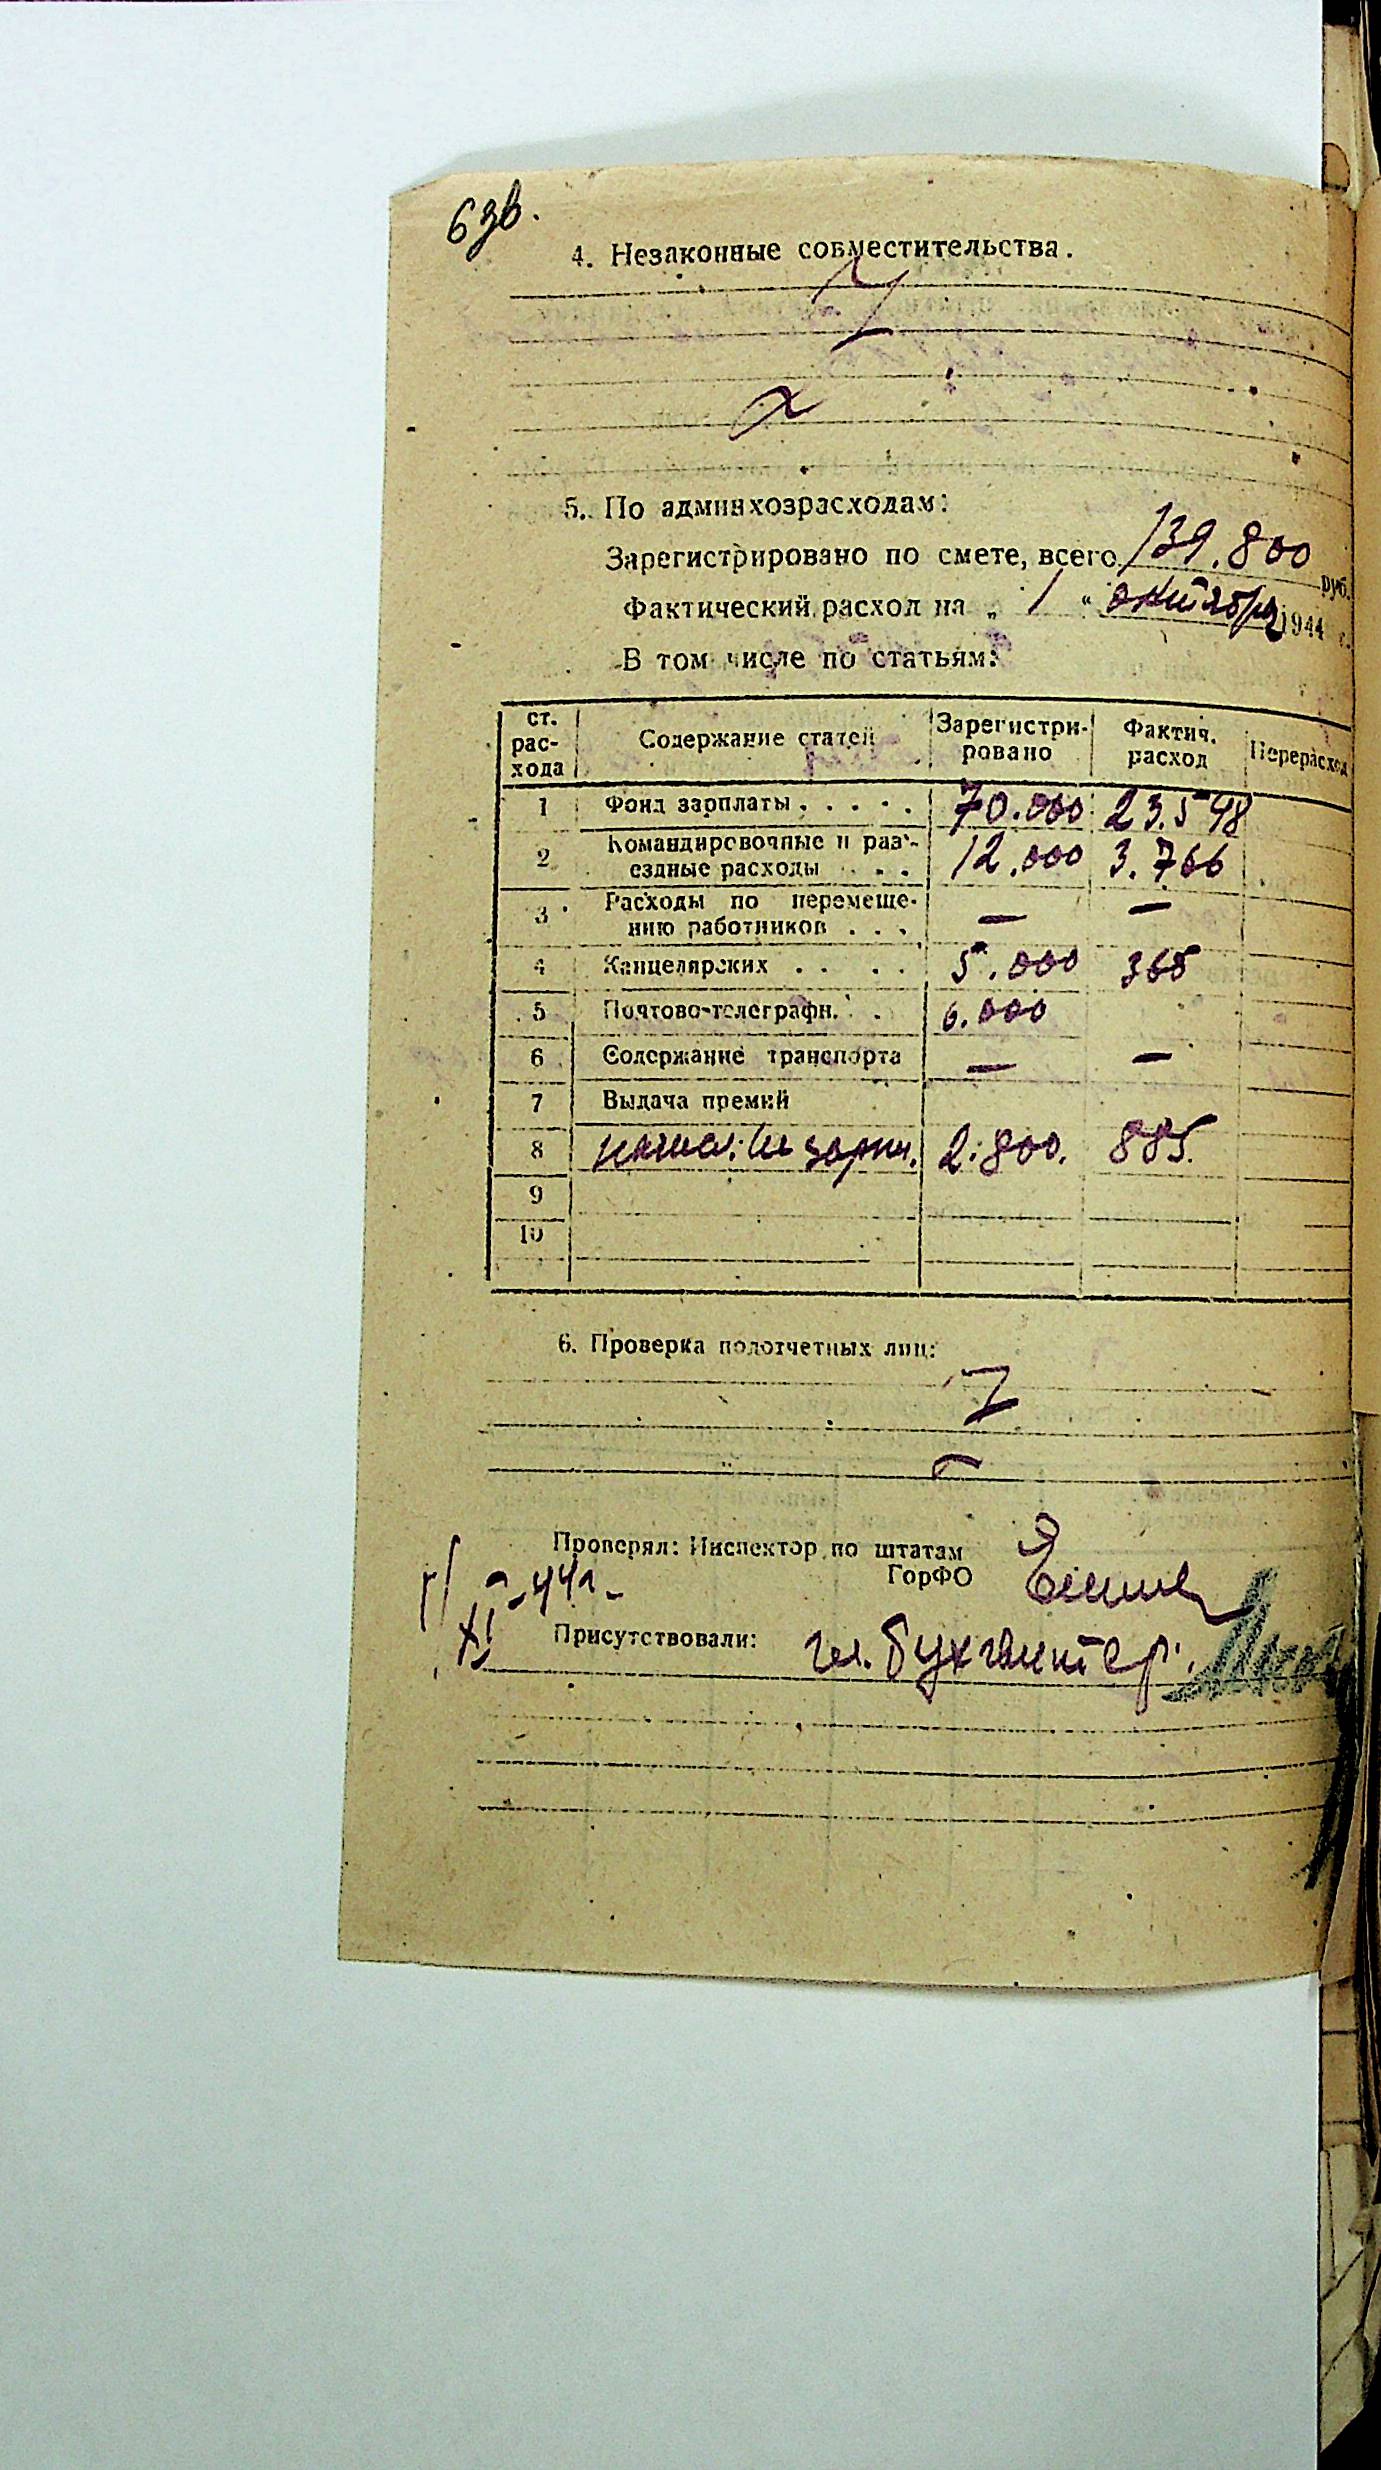 63в.
4. Незаконные совместительства.
5. По админхозрасходам:
Зарегистрировано по смете, всего 139.800 руб.
Фактический расход на „ 1 “ октября 1944 г.
В том числе по статьям:
ст. рас-хода | Содержание статей | Зарегистри-ровано | Фактич. расход | Перерасход
1 Фонд зарплаты . . . . . 70.000 23.548
2 Командировочные и раз'-
ездные расходы . . . 12.000 3.766
3 Расходы по перемеще-
нию работников . . . — —
4 Канцелярских . . . . 5.000 365
5 Почтово-телеграфн. . . 6.000
6 Содержание транспорта — —
7 Выдача премий
8 2.800. 885.
9
10
6. Проверка подотчетных лиц:
Проверял: Инспектор по штатам
ГорФО
XI 44г.
Присутствовали: гл. бухгалтер.